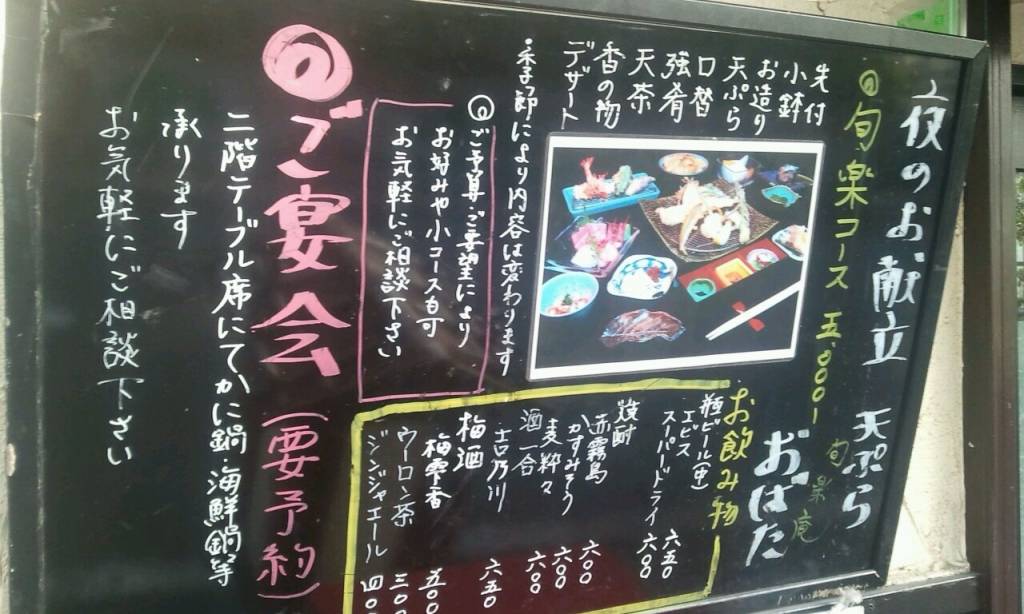 夜のお献立
天ぷら
おばた
旬楽庵
旬楽コース 五,〇〇〇ー
先付
小鉢
お造り
天ぷら
口替
強肴
天茶
香の物
デザート
・季節により内容は変わります
ご予算ご要望により
お好みや小コースも可
お気軽にご相談下さい
お飲み物
瓶ビール(中)
エビス 六五〇
スーパードライ 六〇〇
焼酎
赤霧島 六〇〇
かすみそう 六〇〇
麦粋々 六〇〇
酒一合
吉乃川 六五〇
梅酒
梅雫香 五〇〇
ウーロン茶 三〇〇
ジンジャエール 四〇
ご宴会(要予約)
二階テーブル席にてかに鍋・海鮮鍋等
承ります
お気軽にご相談下さい